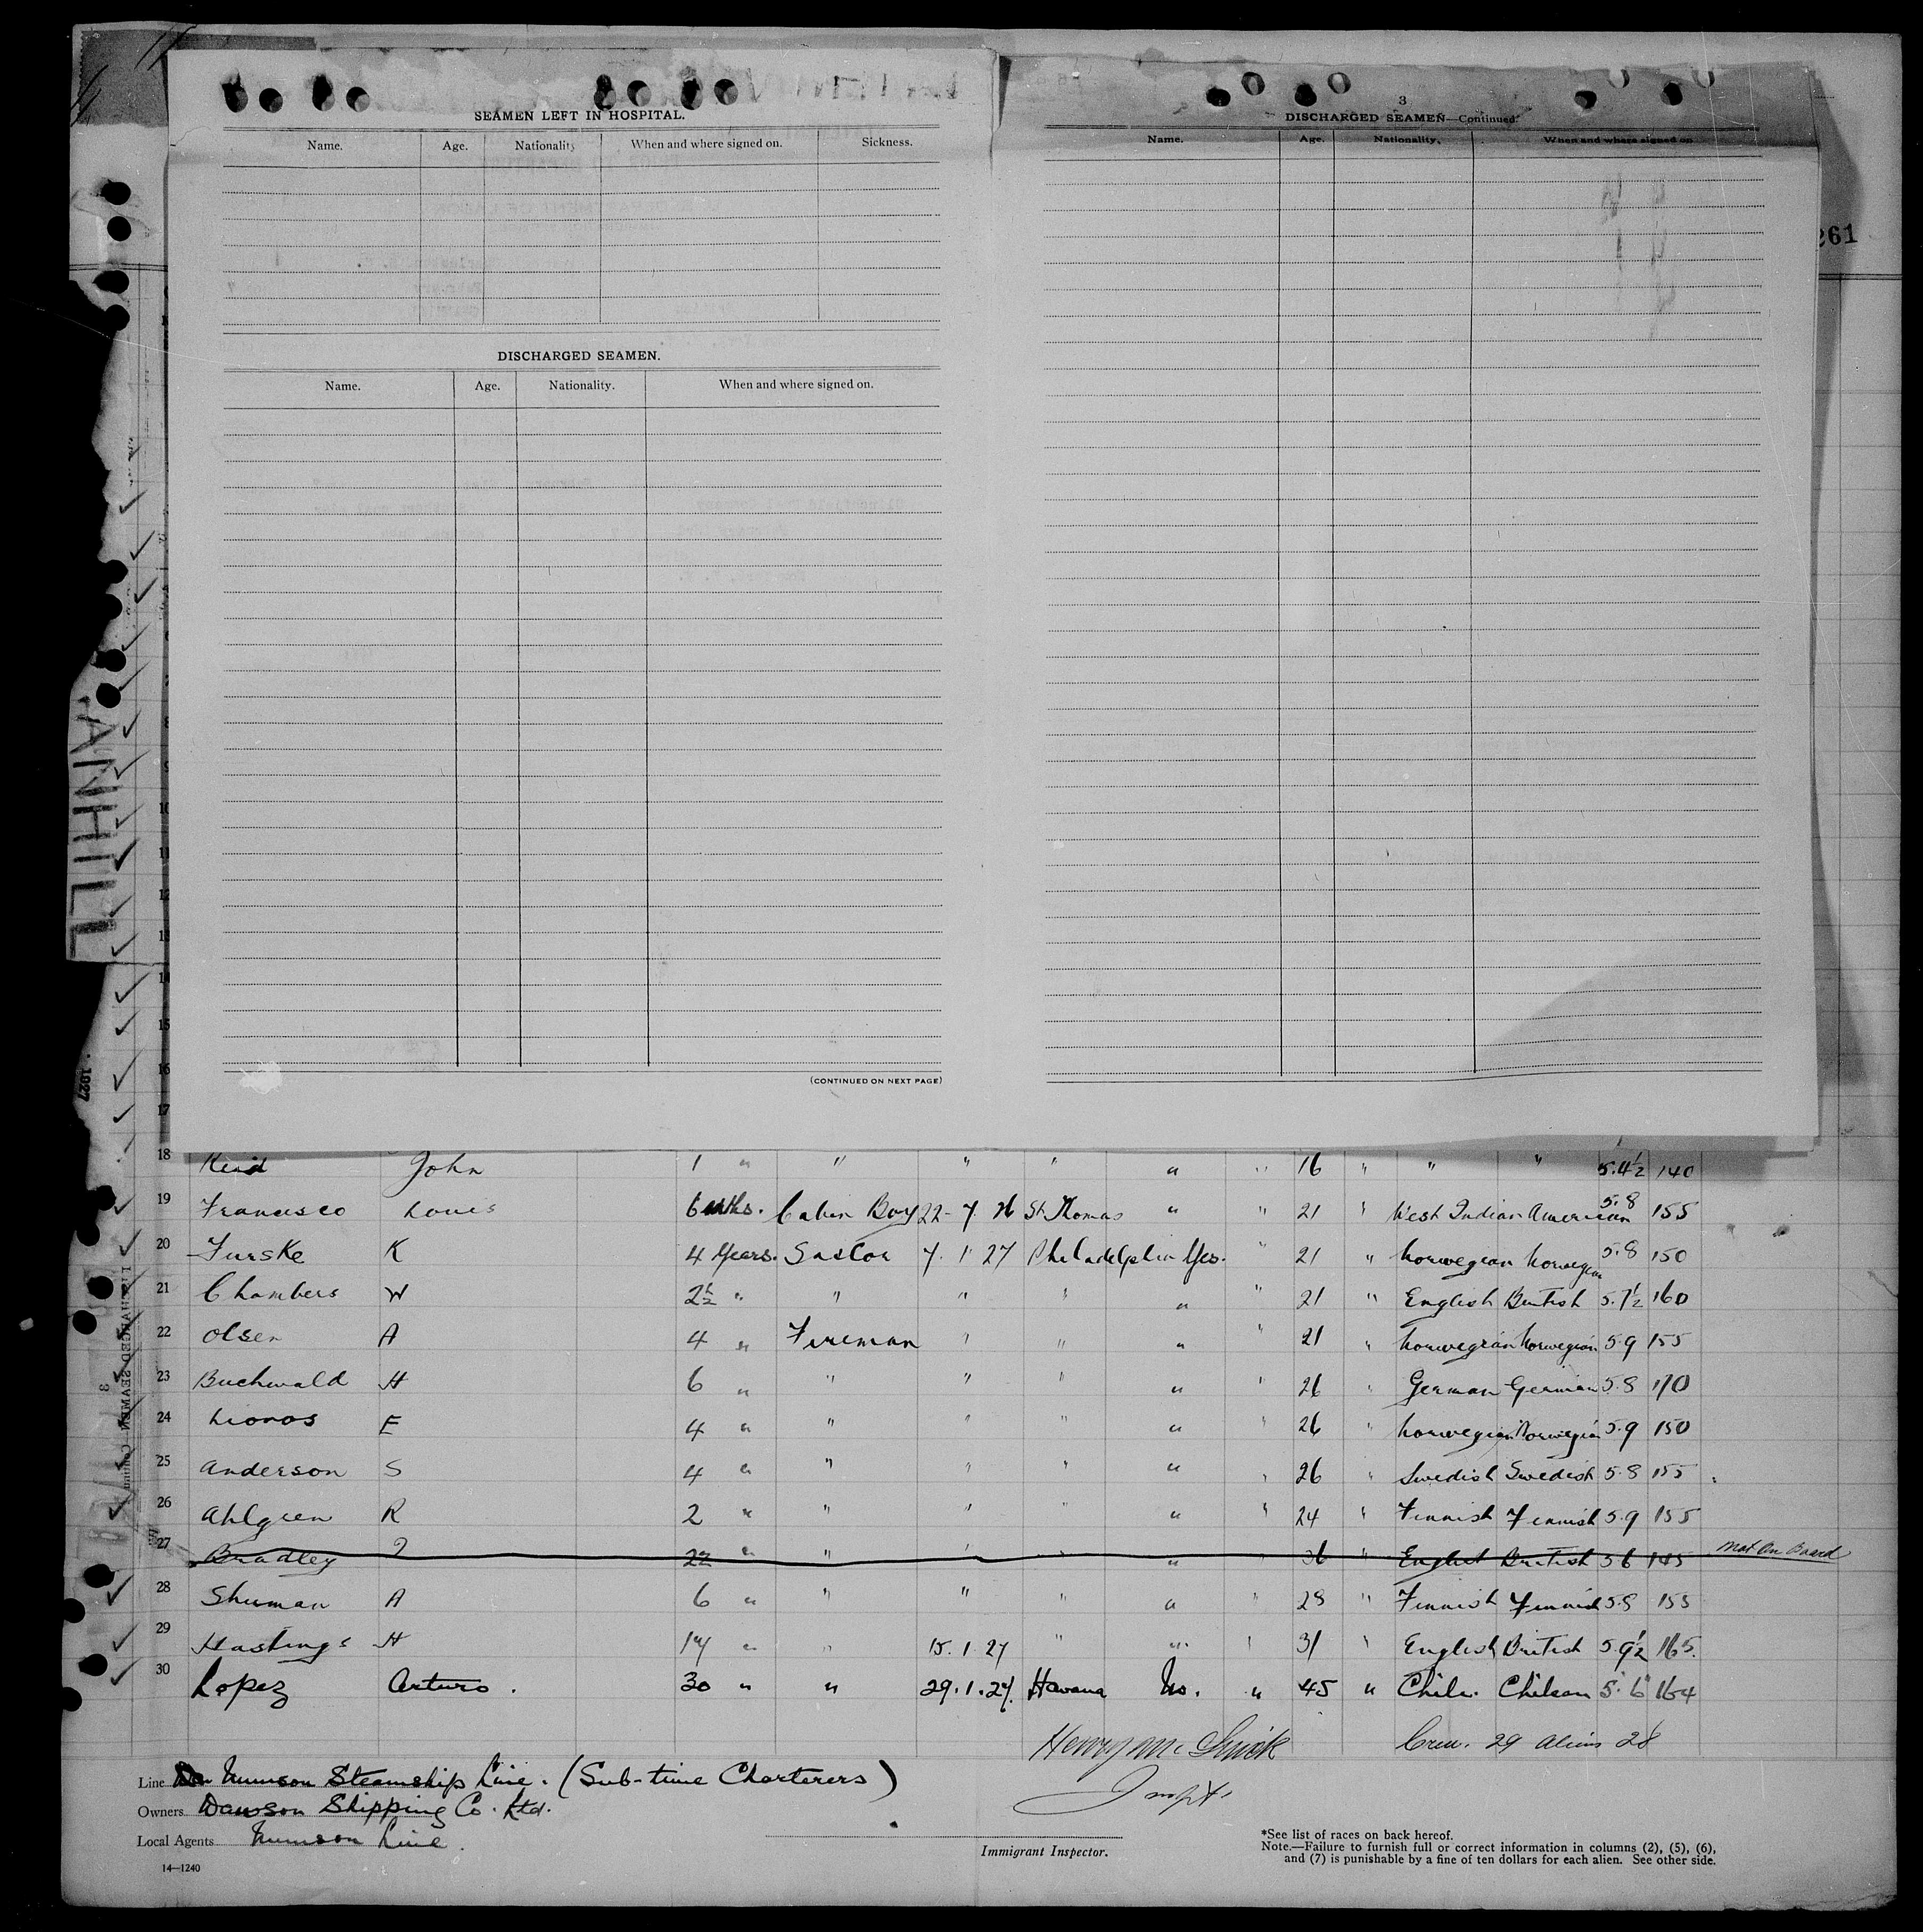 SEAMEN LEFT IN HOSPITAL.
Name. Age. Nationality When and where signed on. Sickness.
DISCHARGED SEAMEN.
Name. Age. Nationality. When and where signed on.
(CONTINUED ON NEXT PAGE)
3
DISCHARGED SEAMEN—Continued.
Name. Age. Nationality. When and where signed on
261
ANHILL
1927
8
9
10
11
12
13
14
15
16
17
18 John 1 " " " " " " 16 " " " 5.4½ 140
19 Francisco Louis 6 mths. Cabin Boy 22-7.26 St Thomas " " 21 " West Indian American 5.8 155
20 Furske K 4 Years. Sailor 7.1.27 Philadelphia Yes. " 21 " Norwegian Norwegian 5.8 150
21 Chambers W 2½ " " " " " 21 " English British 5.7½ 160
22 Olsen A 4 " Fireman " " " " 21 " Norwegian Norwegian 5.9 155
23 Buchwald H 6 " " " " " " 26 " German German 5.8 170
24 E 4 " " " " " " 26 " Norwegian Norwegian 5.9 150
25 Anderson S 4 " " " " " " 26 " Swedish Swedish 5.8 155
26 Ahlgren R 2 " " " " " " 24 " Finnish Finnish 5.9 155
27 Bradley 22 " " " " " " 36 " English British 5 6 145 Not On Board
28 Shuman A 6 " " " " " " 28 " Finnish Finnish 5.8 155
29 Hastings H 14 " " 15.1.27 " " " 31 " English British 5.9½ 165.
30 Lopez Arturo. 30 " " 29.1.27. Havana No. " 45 " Chile. Chilean 5.6 164
Crew. 29 Aliens 28
Line Munson Steamship Line. (Sub-time Charterers)
Owners Dawson Shipping Co. Ltd.
Local Agents Munson Line.
14—1240
Immigrant Inspector.
*See list of races on back hereof.
Note.—Failure to furnish full or correct information in columns (2), (5), (6),
and (7) is punishable by a fine of ten dollars for each alien. See other side.